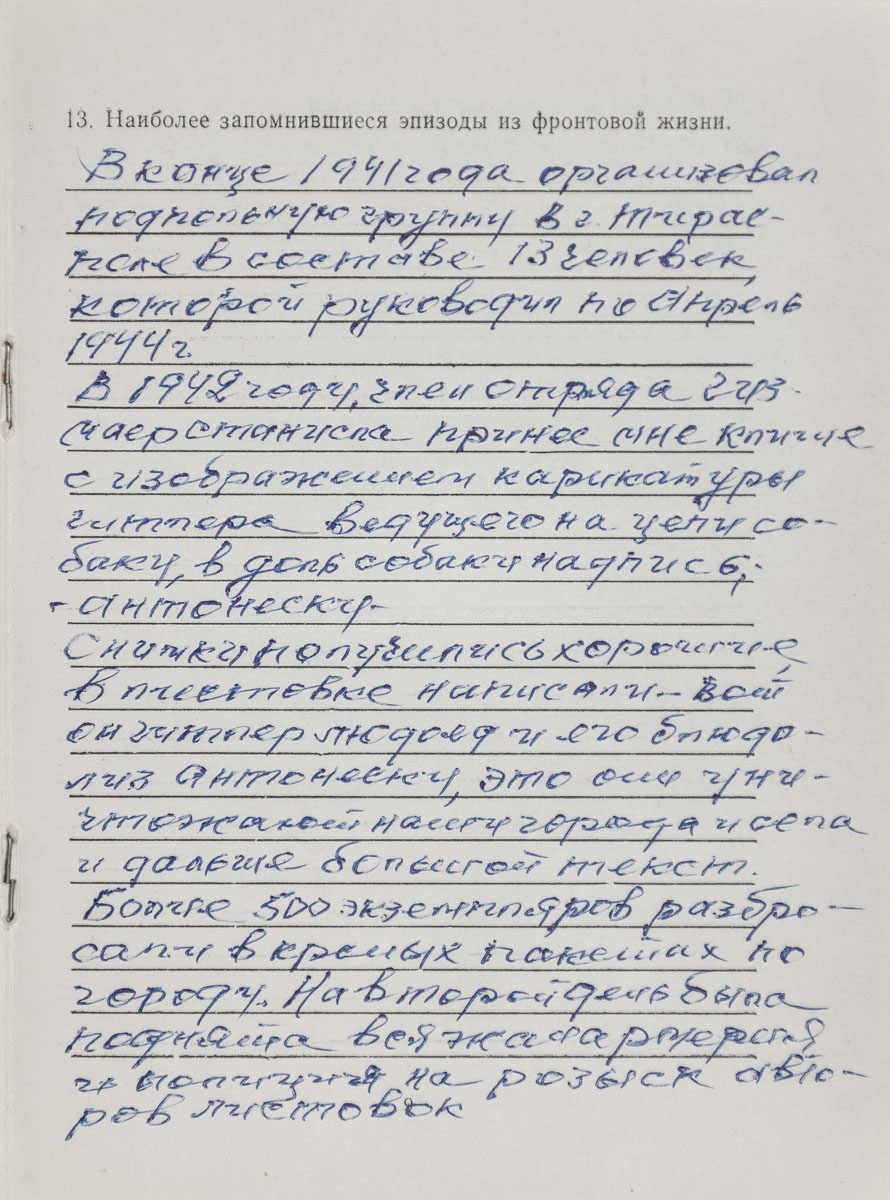 13. Наиболее запомнившиеся эпизоды из фронтовой жизни.
В конце 1941 года организовал
подпольную группу в г. Тирас-
поле в составе 13 человек,
которой руководил по Апрель
1944 г.
В 1942 году, член отряда
принес мне клише
с изображением карикатуры
гитлера ведущего на цепи со-
баку, в доль собаки надпись;-
- Антонеску-
Снимки получились хорошие,
в листовке написали - вот
он гитлер людоед и его блюдо-
лиз Антонеску, это они уни-
чтожают наши города и села
и дальше большой текст.
Более 500 экземпляров разбро-
сали в пакетах по
городу. На второй день была
поднята вся жандармерия
и полиция на розыск авто-
ров листовок